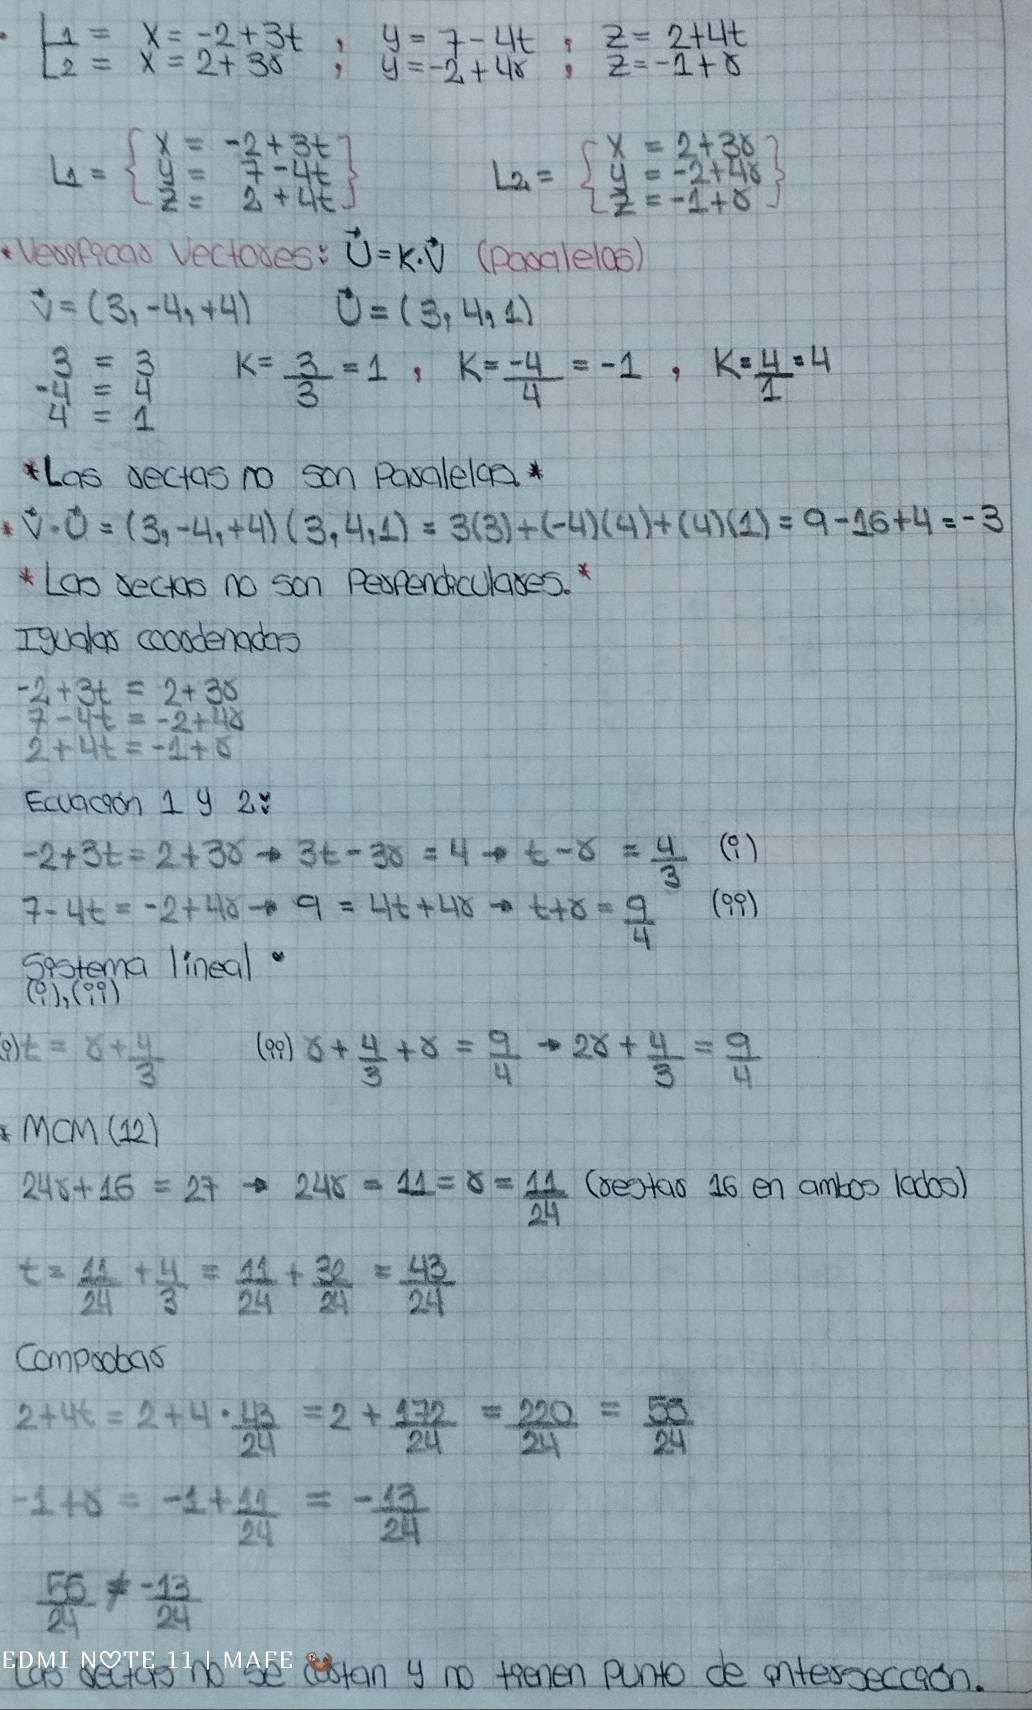 L1 = x = -2+3t ; y = 7-4t ; z = 2+4t
L2 = x = 2+3r ; y = -2+4r ; z = -1+r
L1 = { x = -2+3t
y = 7-4t
z = 2+4t }
L2 = { x = 2+3r
y = -2+4r
z = -1+r }
• Verificar vectores: U⃗ = K·V⃗ (Paralelas)
V⃗ = (3, -4, +4) U⃗ = (3, 4, 1)
3 = 3
-4 = 4
4 = 1
K = 3/3 = 1 , K = -4/4 = -1 , K = 4/1 = 4
*Las rectas no son Paralelas.*
* V⃗·U⃗ = (3, -4, +4) (3, 4, 1) = 3(3)+(-4)(4)+(4)(1) = 9-16+4 = -3
*Las rectas no son Perpendiculares.*
Igualar coordenadas
-2+3t = 2+3r
7-4t = -2+4r
2+4t = -1+r
Ecuación 1 y 2:
-2+3t = 2+3r → 3t-3r = 4 → t-r = 4/3 (i)
7-4t = -2+4r → 9 = 4t+4r → t+r = 9/4 (ii)
Sistema lineal •
(i), (ii)
(i) t = r + 4/3 (ii) r + 4/3 + r = 9/4 → 2r + 4/3 = 9/4
* MCM (12)
24r+16 = 27 → 24r = 11 = r = 11/24 (restar 16 en ambos lados)
t = 11/24 + 4/3 = 11/24 + 32/24 = 43/24
Comprobar
2+4t = 2+4 · 43/24 = 2 + 172/24 = 220/24 = 55/24
-1+r = -1 + 11/24 = -13/24
55/24 ≠ -13/24
Las rectas no se cortan y no tienen punto de intersección.
EDMI NOTE 11 | MAFE